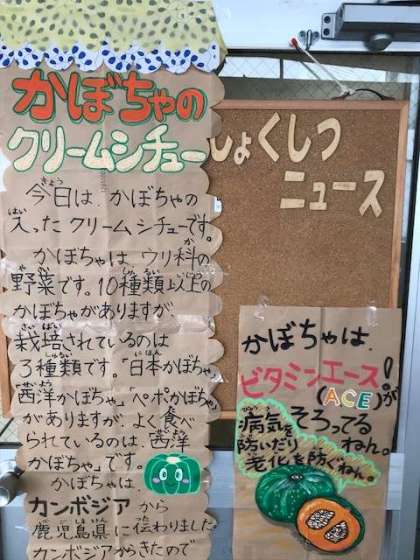 かぼちゃの
クリームシチュー
今日は、かぼちゃの
入ったクリームシチューです。
かぼちゃは、ウリ科の
野菜です。10種類以上の
かぼちゃがありますが
栽培されているのは
3種類です。「日本かぼちゃ」
「西洋かぼちゃ」「ペポかぼちゃ」
がありますが、よく食べ
られているのは、「西洋
かぼちゃ」です。
かぼちゃは、
カンボジアから
鹿児島県に伝わりました
カンボジアからきたので
しょくしつ
ニュース
かぼちゃは、
ビタミンエース!
(ACE)が
そろってる
ねん。
病気を
防いだり
老化を防ぐねん。